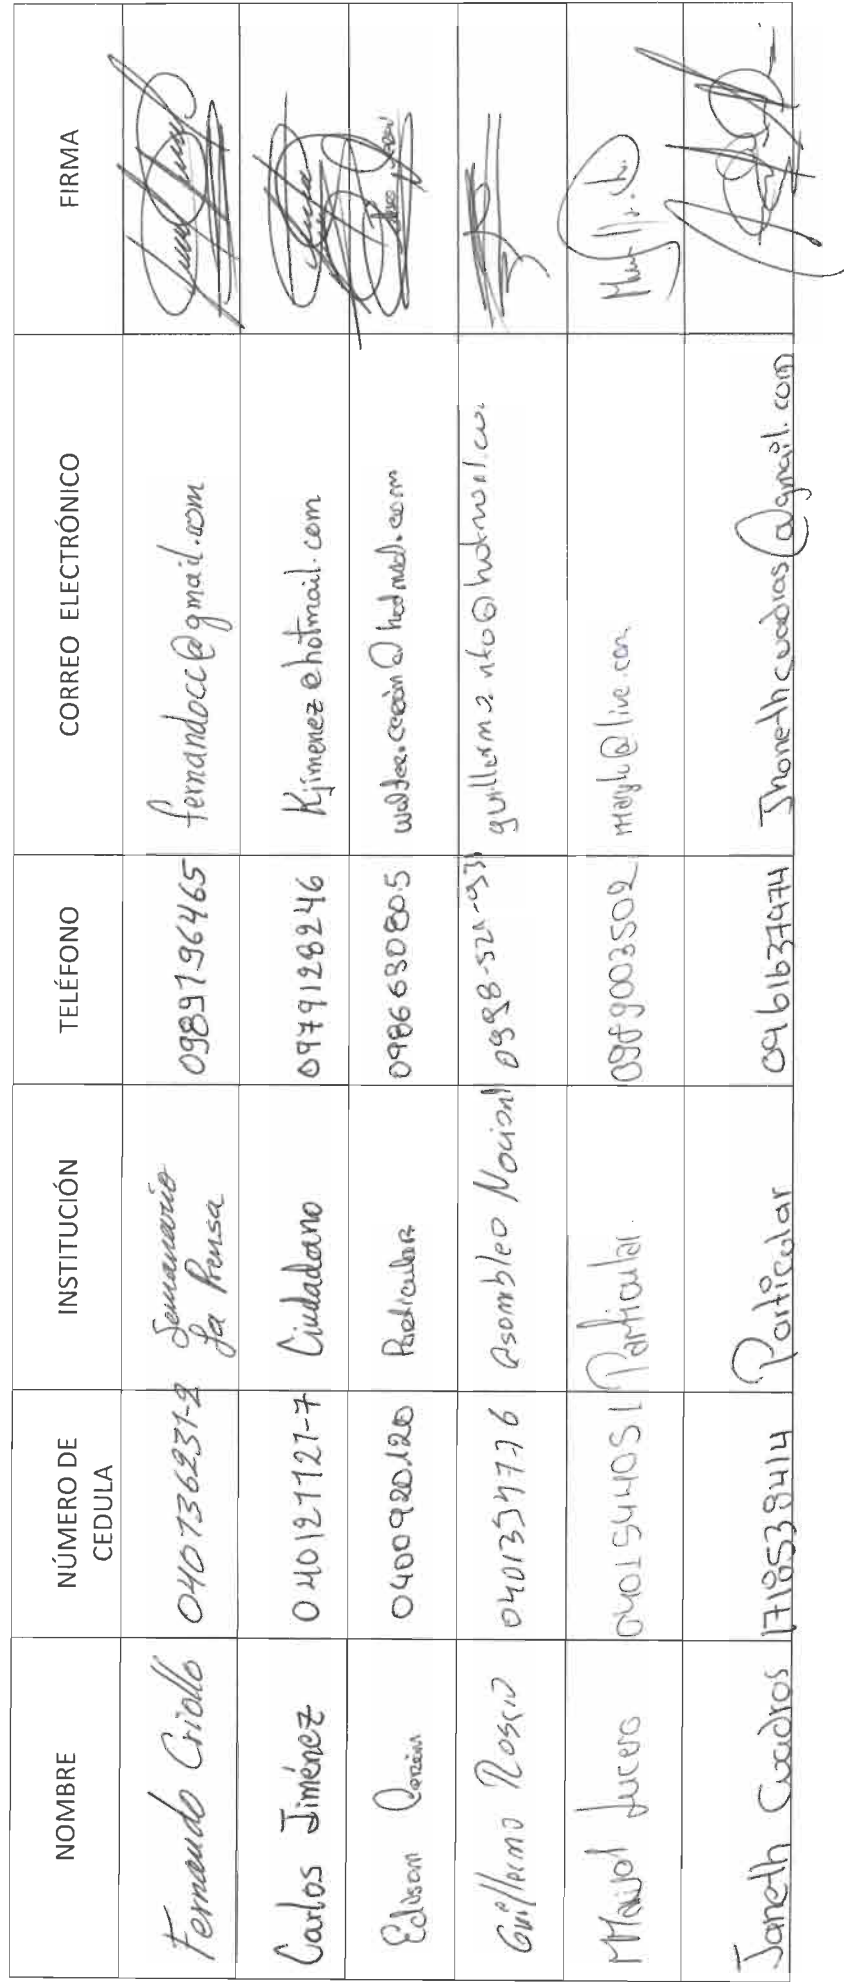 NOMBRE NÚMERO DE CEDULA INSTITUCIÓN TELÉFONO CORREO ELECTRÓNICO FIRMA
Fernando Criollo 040136231-2 Semanario La Prensa 0989796465 fernandocc@gmail.com
Carlos Jiménez 040121727-7 Ciudadano 0979128246 Kjimenez@hotmail.com
Edison Cerón 0400920120 Particular 0986690805 walter.ceron@hotmail.com
Guillermo 0401394776 Asamblea Nacional
Marisol Lucero 0401544051 Particular. 0989003502
Janeth Cuadros 1718539414 Particular 0961637974 Jhonethcuadros@gmail.com